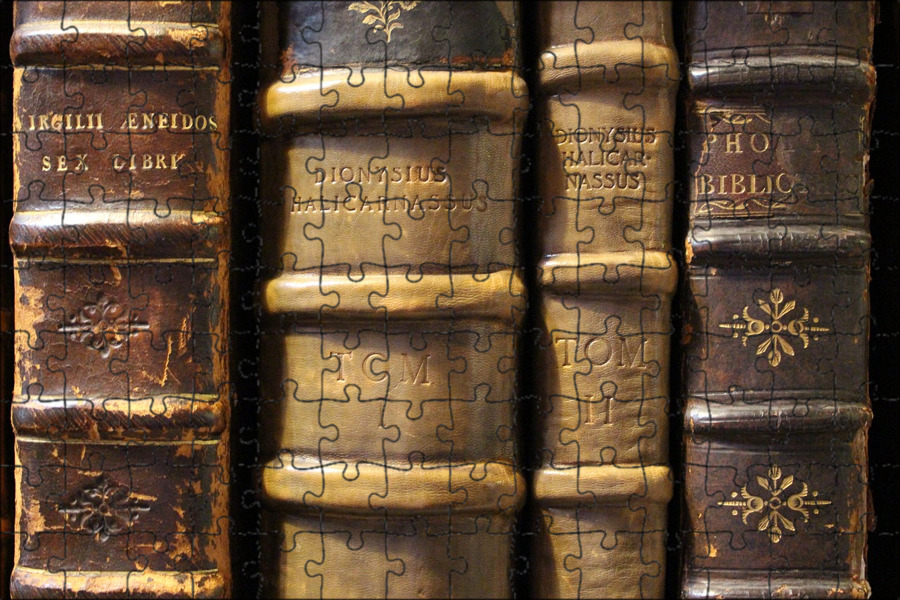 IRGILII ÆNEIDOS
SEX LIBRI
DIONYSIUS
HALICARNASSUS
TOM
DIONYSIUS
HALICAR-
NASSUS
TOM
II
PHO
BIBLIO